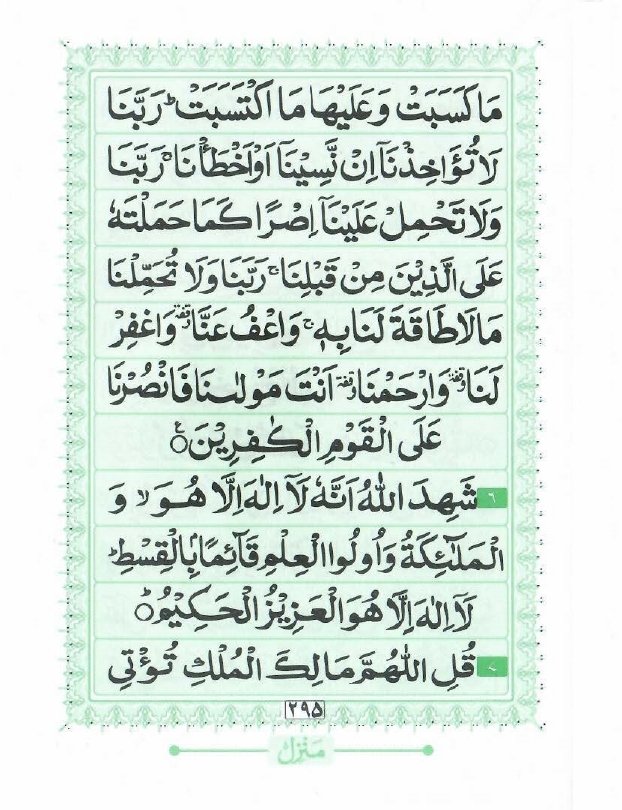 مَا كَسَبَتْ وَعَلَيْهَا مَا اكْتَسَبَتْ ؕ رَبَّنَا
لَا تُؤَاخِذْنَاۤ اِنْ نَّسِيْنَاۤ اَوْ اَخْطَاْنَا ۚ رَبَّنَا
وَلَا تَحْمِلْ عَلَيْنَاۤ اِصْرًا كَمَا حَمَلْتَهٗ
عَلَى الَّذِيْنَ مِنْ قَبْلِنَا ۚ رَبَّنَا وَلَا تُحَمِّلْنَا
مَا لَا طَاقَةَ لَنَا بِهٖ ۚ وَاعْفُ عَنَّا وقفة وَاغْفِرْ
لَنَا وقفة وَارْحَمْنَا وقفة اَنْتَ مَوْلٰىنَا فَانْصُرْنَا
عَلَى الْقَوْمِ الْكٰفِرِيْنَ ۝ۧ
٦ شَهِدَ اللّٰهُ اَنَّهٗ لَاۤ اِلٰهَ اِلَّا هُوَ ۙ وَ
الْمَلٰٓئِكَةُ وَاُولُوا الْعِلْمِ قَآئِمًۢا بِالْقِسْطِ ؕ
لَاۤ اِلٰهَ اِلَّا هُوَ الْعَزِيْزُ الْحَكِيْمُ ۝ؕ
٧ قُلِ اللّٰهُمَّ مَالِكَ الْمُلْكِ تُؤْتِى
۲۹۵
منزل